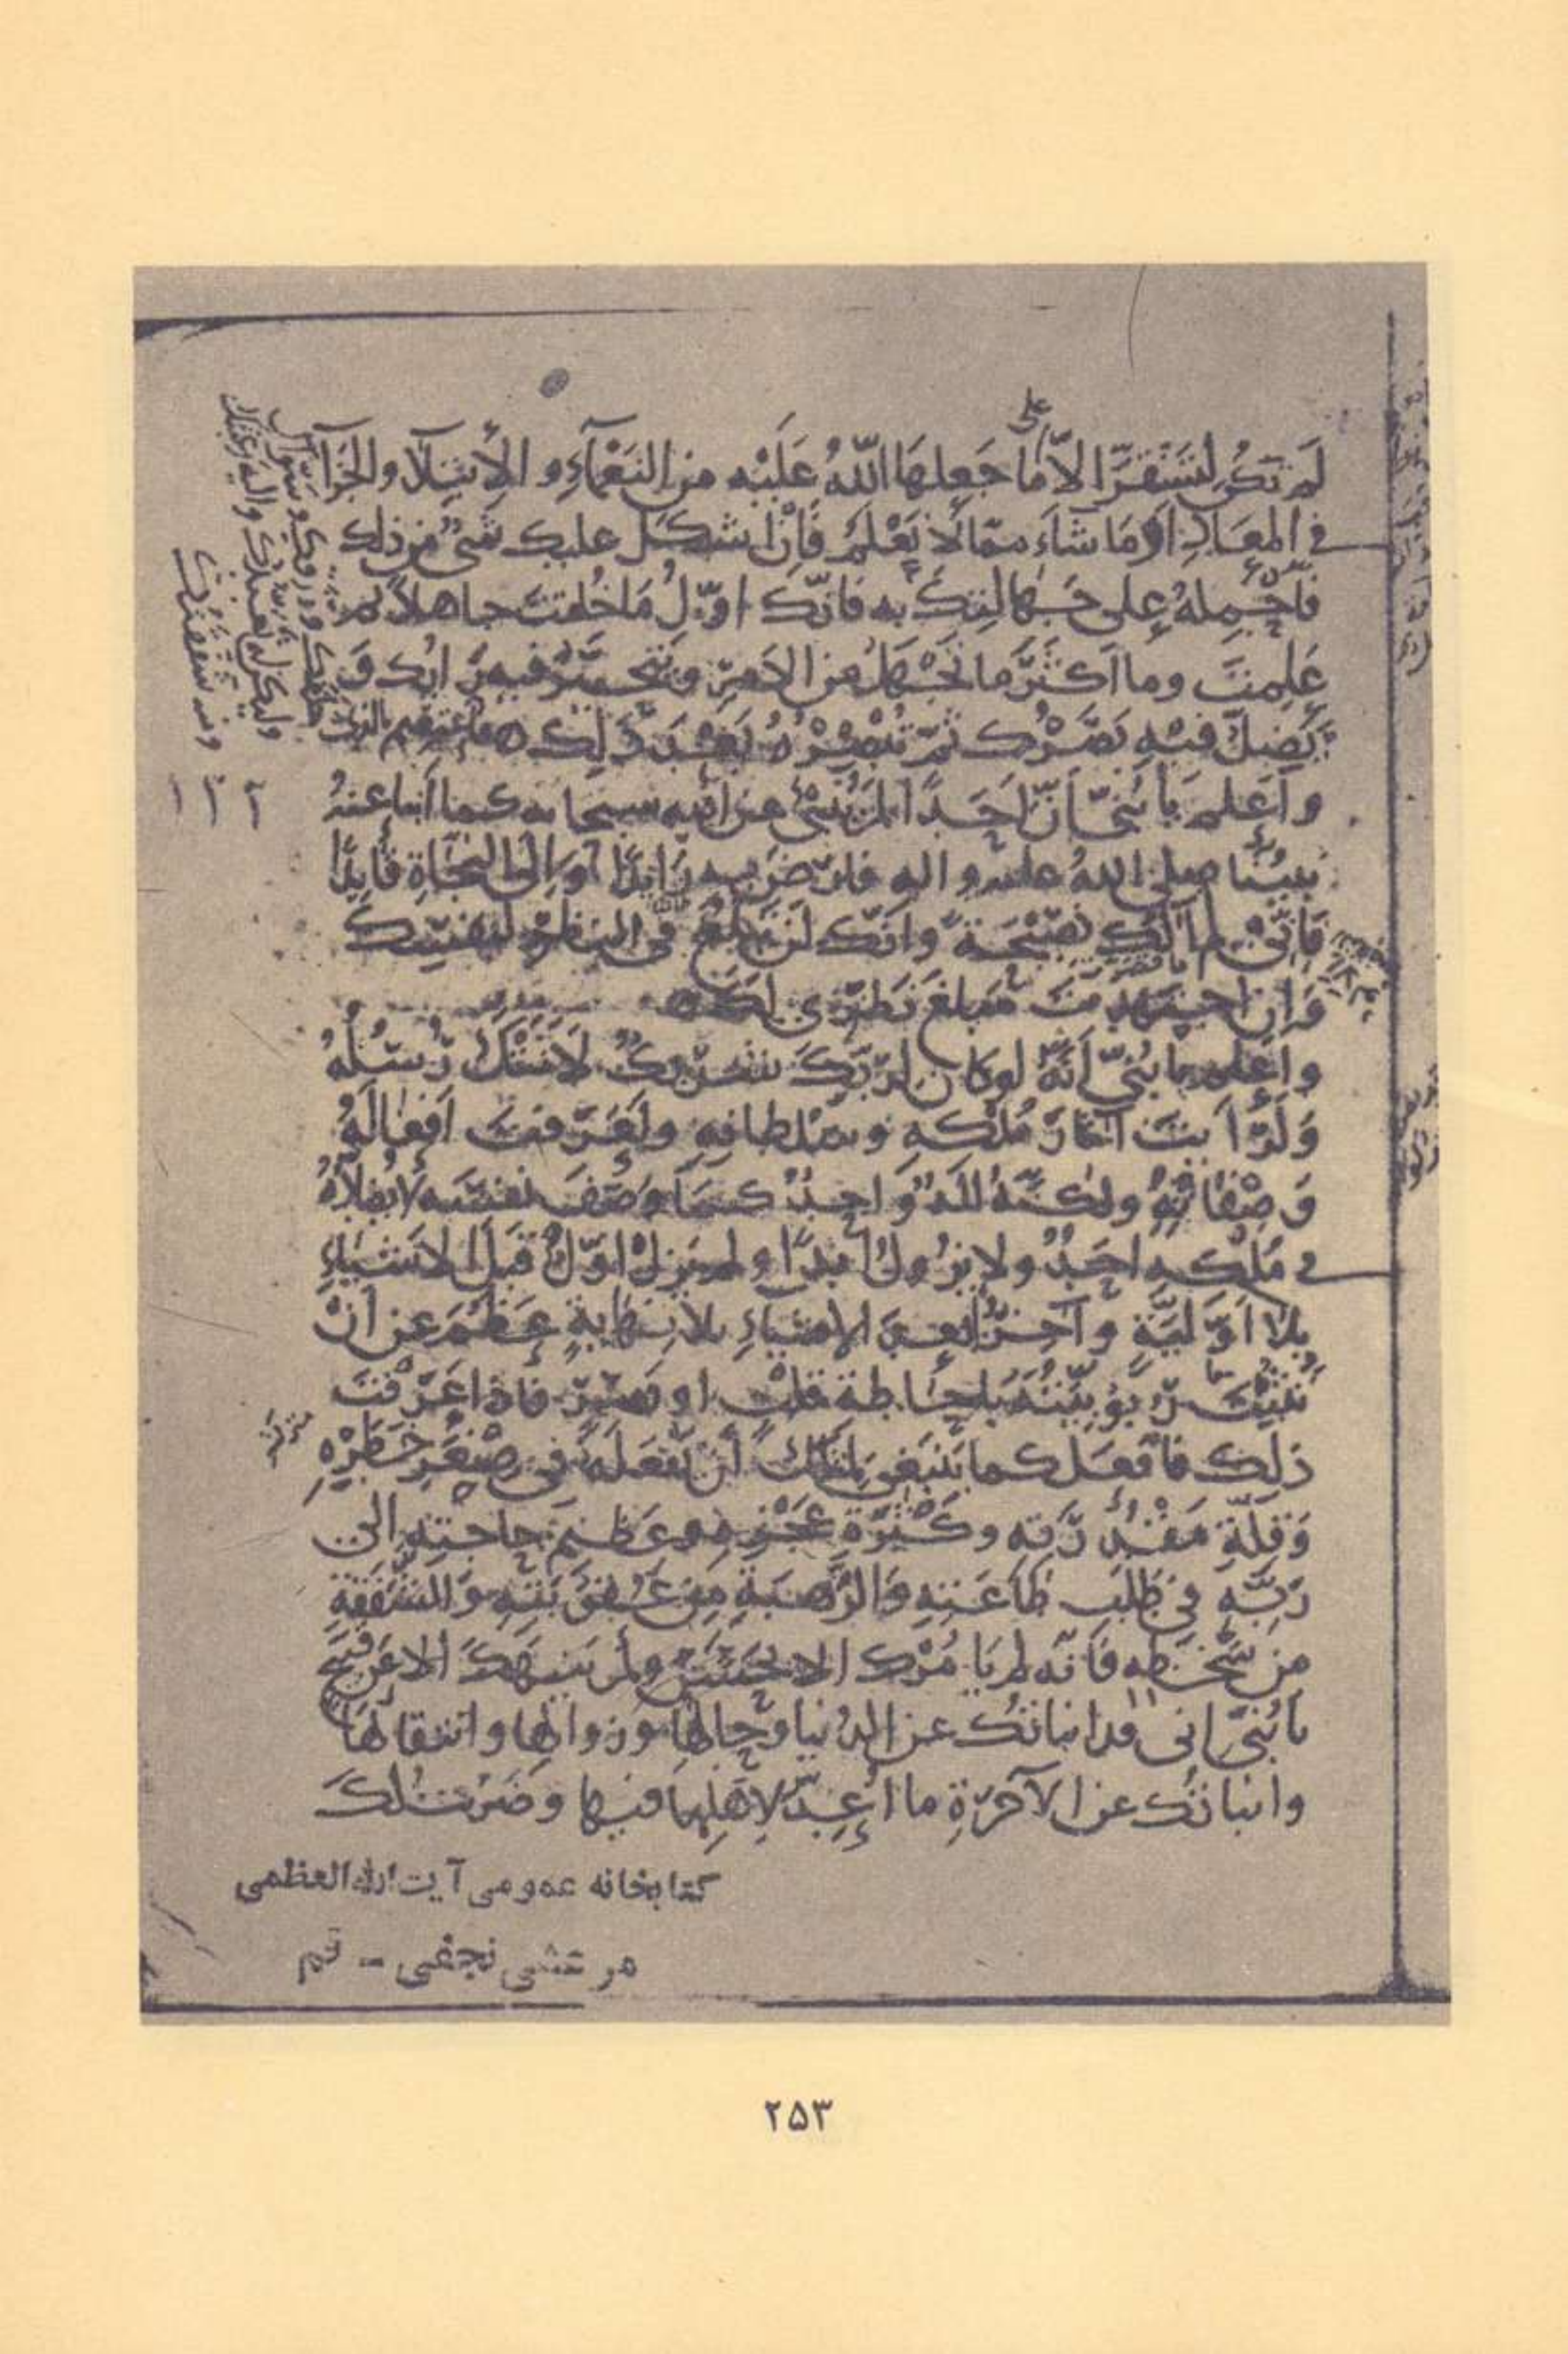 لَم تكُن لتَسْتَقرّ الاّ على مَا جَعلهَا اللّهُ عَلَيْه من النَعْمآءِ و الأبتِلآ والجَزآ
في المعَادِ اَوْ مَا شآءَ ممّا لا تَعْلم فَاِنْ اشكَل عليك شَىْءٌ من ذلك
فَاحْمِلْهُ على جَهالتِكَ به فانّكَ اوّلُ مَا خُلِقتَ جاهلاً ثم
عَلِمتَ وما اَكثَرَ ما تَجْهَلُ من الامرِ وَيتحيّرُ فيه رَايُك وَ
يَضِلُّ فيْهِ بَصَرُك ثمّ تُبْصِرُهُ بَعْدَ ذَلِك فاعتصم بالذى
خلقك ورزقك وسَوّاك
وليكن له تعبّدك واليه رغبتك
ومنه شفقتك
وَاعلم يا بُنَىَّ اَنّ اَحَدًا لم يُنْبِئ عن اللّه سبحانه كما اَنبا عنهُ
نبيُّنا صلى اللهُ عليه واله فارْضَ به رَايِدًا وَ اِلى النجَاةِ قَايِدًا
فَاِنّى لم آلُكَ نصِيْحَةً وانّك لَن تبلُغَ فى النظر لنفسِك
وَاِن اجتهدتَ مَبلغَ نَظَرِى لكَ
واعلم يا بُنىّ اَنّهُ لوكان لرَبّكَ شريكٌ لاَتَتْكَ رُسُلُهُ
وَلَرَاَيتَ آثارَ مُلْكهِ وسُلطانِهِ ولَعَرَفتَ اَفعَالَهُ
وَصِفَاتهُ ولكنّهُ اِلَهٌ وَاحِدٌ كمَا وَصَفَ نفسَه لا يُضَادُّهُ
فى مُلْكِه اَحَدٌ ولا يزُولُ اَبدًا ولم يزل اوّلٌ قَبلَ الاشياءِ
بِلا اَوّليّةٍ وآخِرٌ بعدَ الاشياءِ بلا نِهَايةٍ عَظُمَ عن اَنْ
تَثبُتَ رُبُوبِيّتُهُ باِحَاطةِ قلبٍ او بَصَرٍ فاذا عَرَفتَ
ذلِك فافعَل كما يَنبَغى لمثلك اَن يَفعَلَهُ فى صِغَرِ خَطَرِهِ
وَقلّةِ مَقْدُرَته وكَثْرَةِ عَجْزِه وعَظيم حاجتهِ الى
رَبّه فى طَلَب طَاعَتهِ وَالرَّهبَةِ من عُقُوبَتهِ وَالشَّفَقةِ
من سُخْطه فَانّه لم يَامُرْك الا بِحَسَنٍ ولم يَنهَكَ الا عن قبِيح
يا بُنَىّ انى قد انباتُك عن الدُنيا وحالِهَا وزوالِها وانتقالِهَا
وانباتُك عن الآخِرَةِ ما اُعِدّ لاِهلِهَا فيها وضَرَبتُ لكَ
كتابخانه عمومى آيت الله العظمى
مرعشى نجفى - قم
٢۵٣